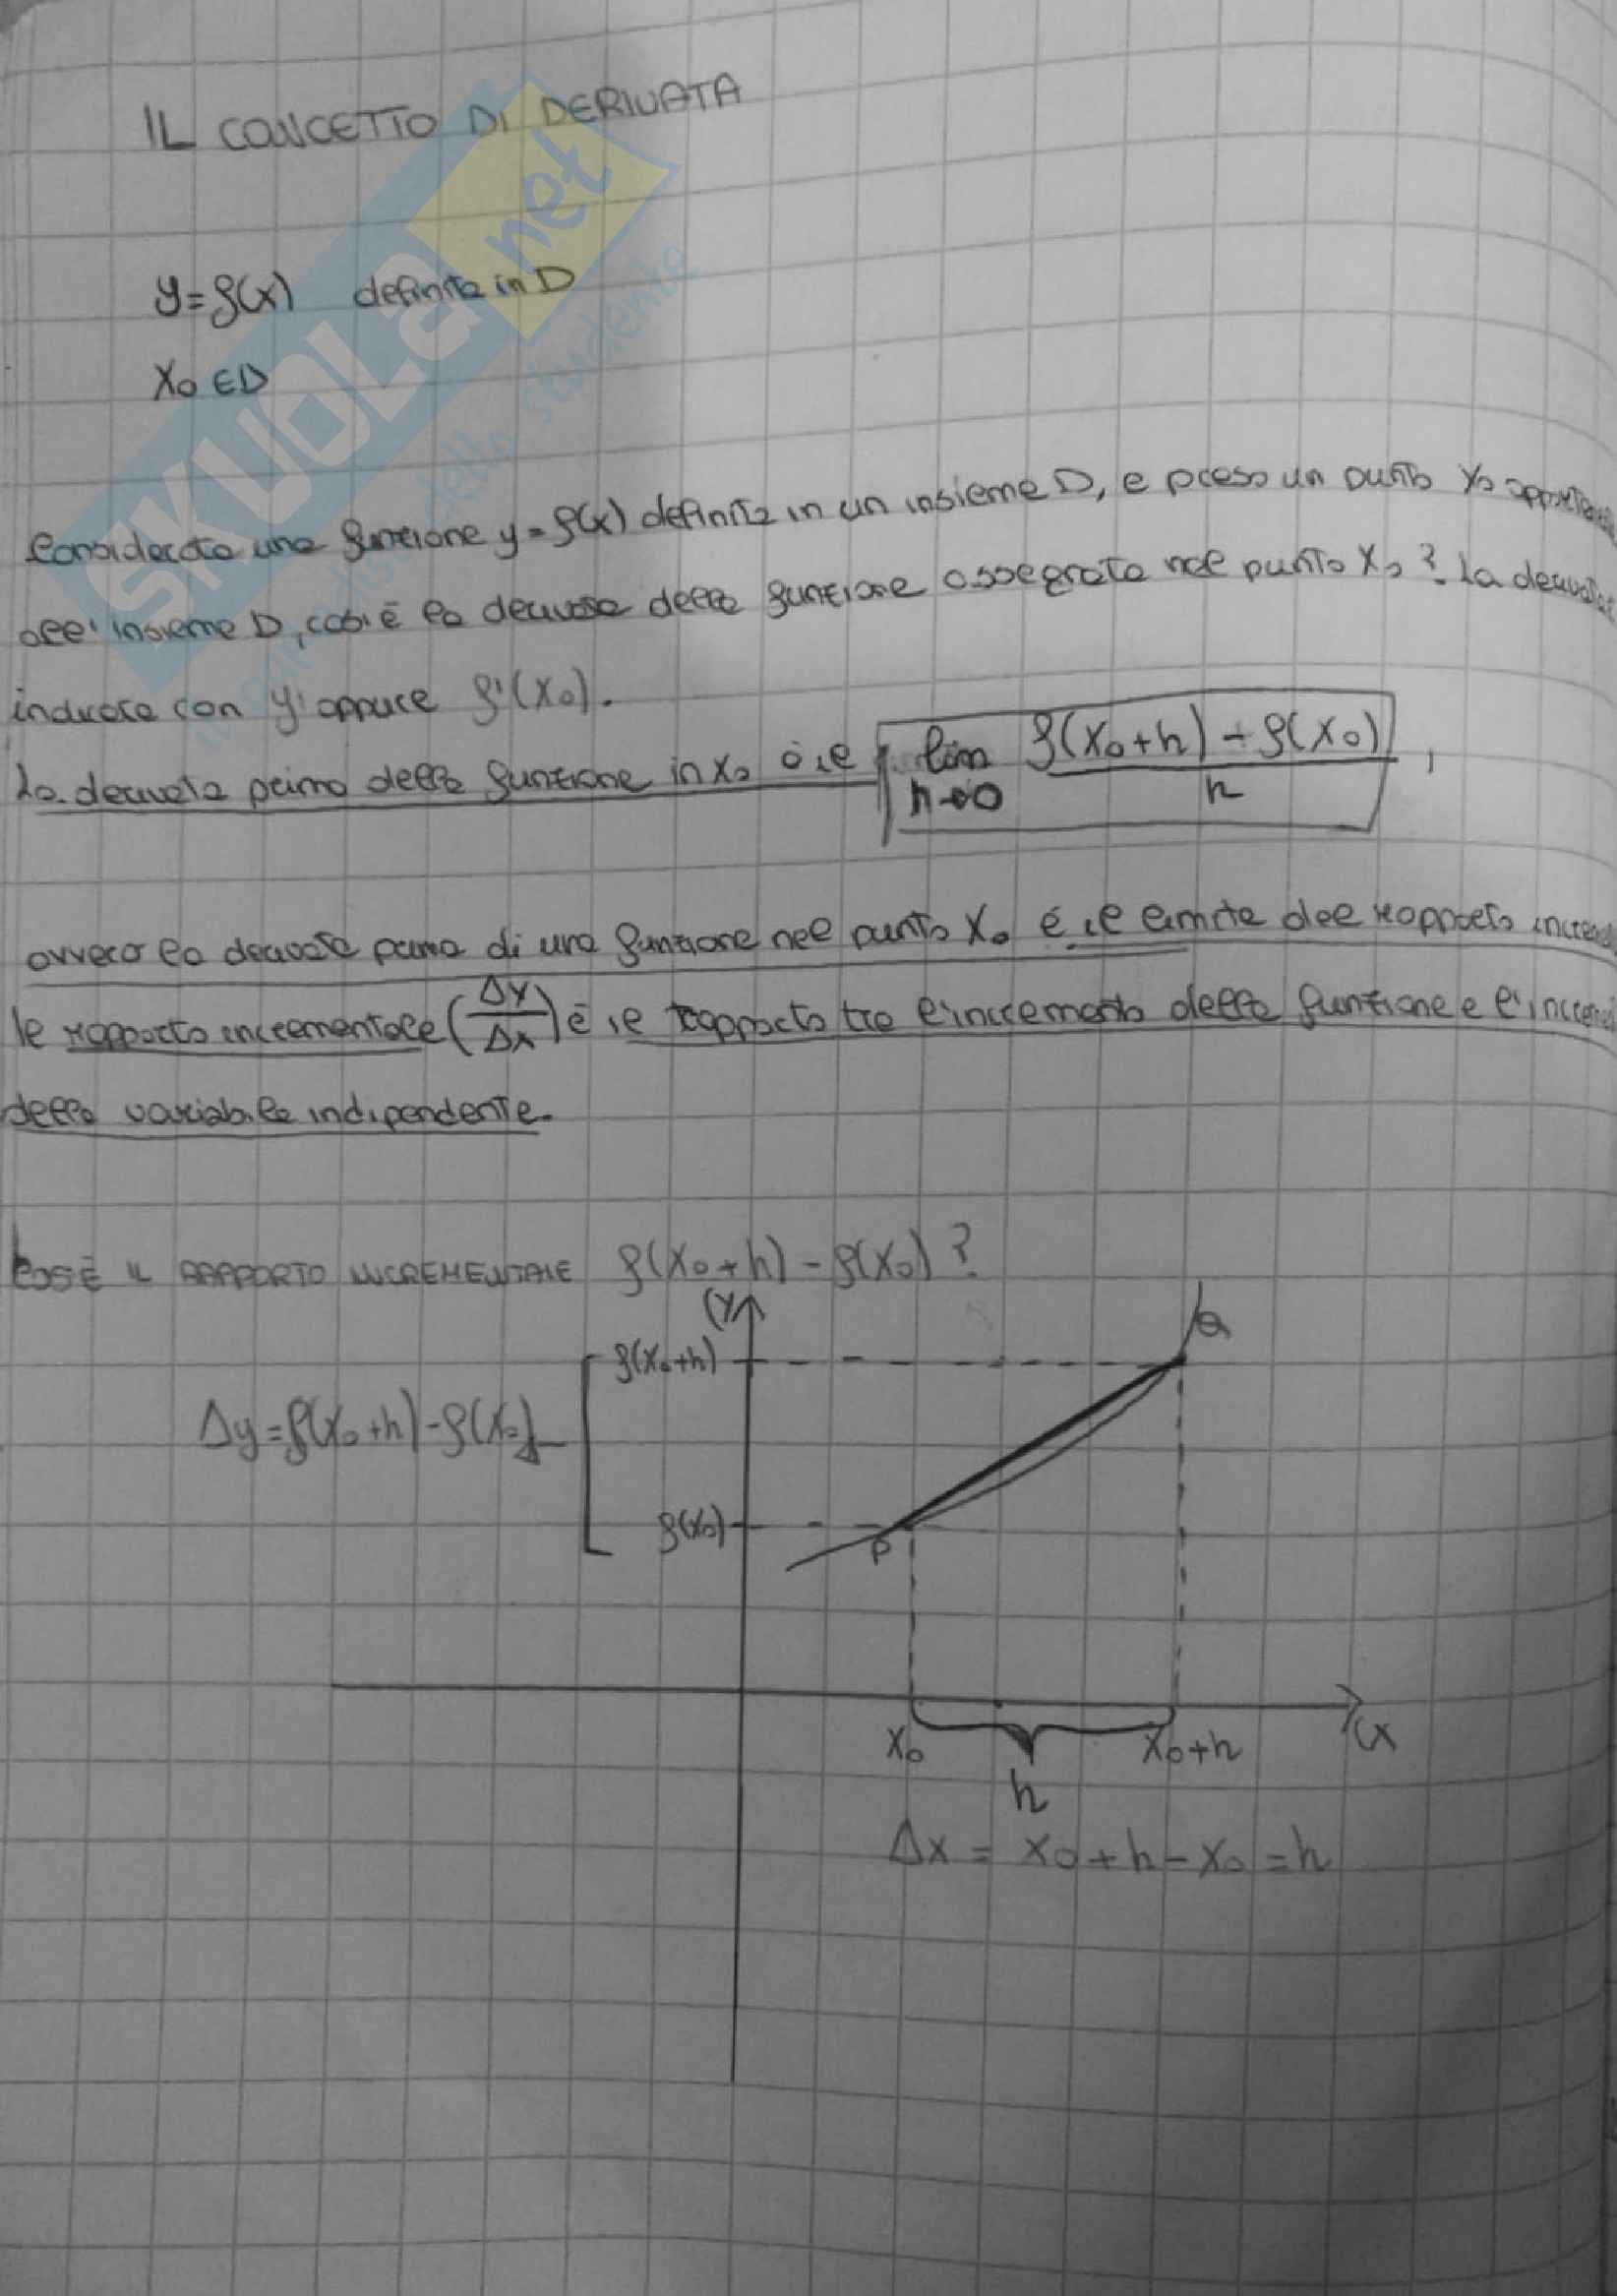 IL CONCETTO DI DERIVATA
y=f(x) definita in D
X₀ ∈ D
Considerata una funzione y=f(x) definita in un insieme D, e preso un punto X₀
all'insieme D, cos'è la derivata della funzione assegnata nel punto X₀? La
indicata con y' oppure f'(X₀).
La derivata prima della funzione in X₀ è il lim h→0 f(X₀+h)-f(X₀) / h ,
ovvero la derivata prima di una funzione nel punto X₀ è il limite del rapporto
le rapporto incrementale (Δy/Δx) è il rapporto tra l'incremento della funzione e l'
della variabile indipendente.
COS'È IL RAPPORTO INCREMENTALE f(X₀+h)-f(X₀)?
(y
Q
f(X₀+h)
Δy=f(X₀+h)-f(X₀)
f(X₀)
P
X₀ X₀+h (x
h
Δx = X₀+h-X₀=h
SKUOLA.net